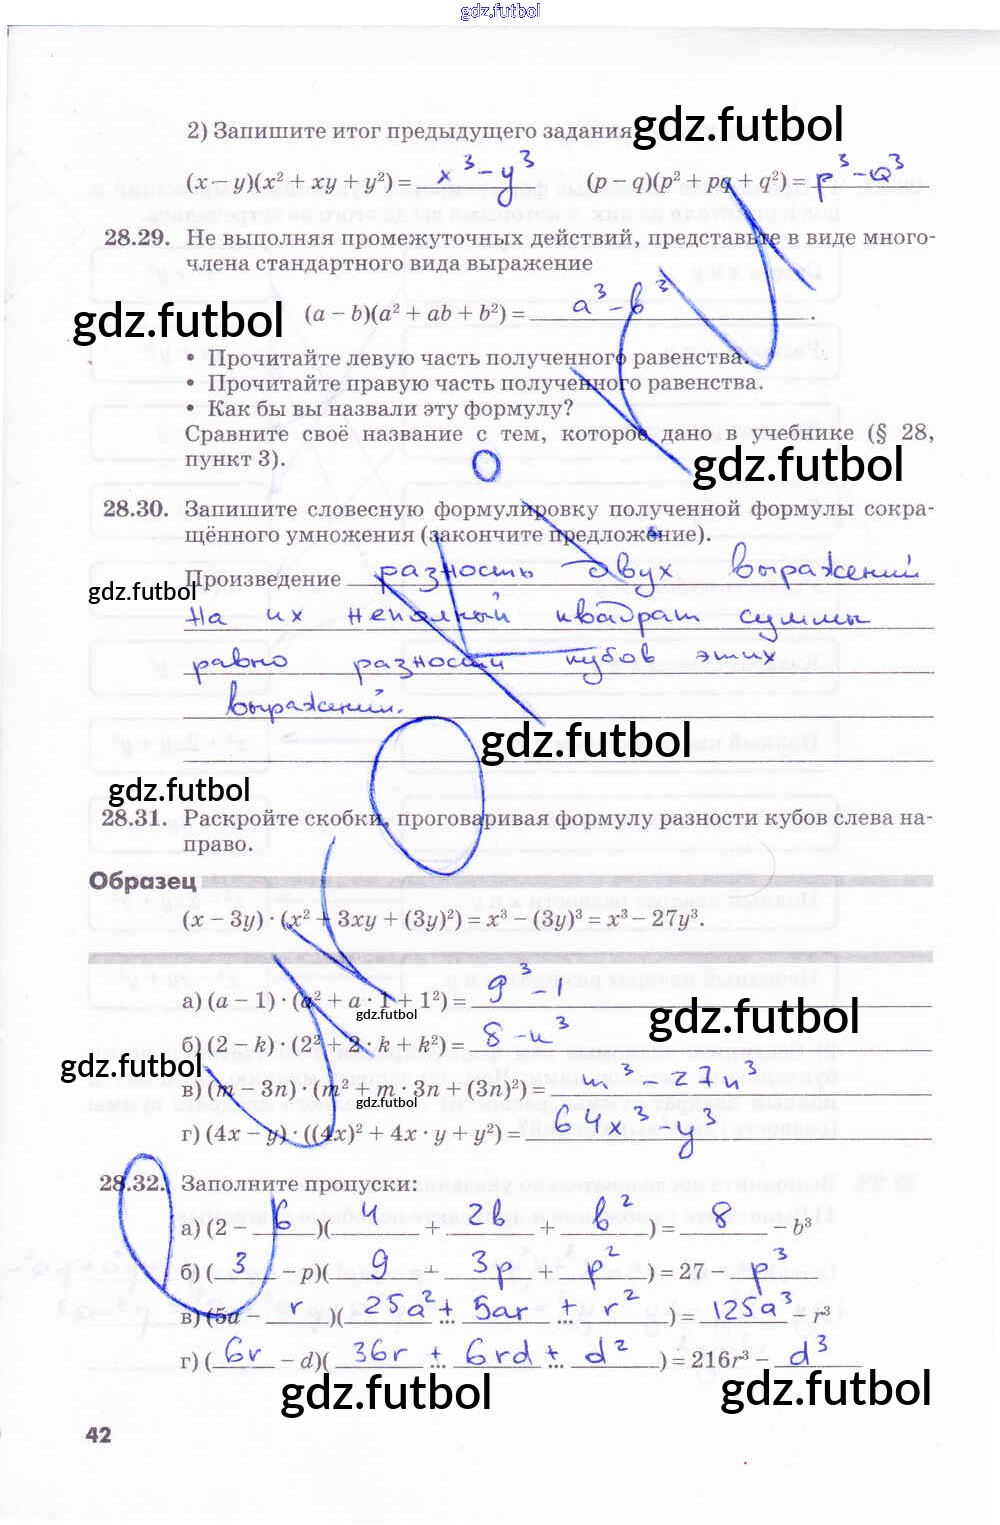 gdz.futbol
2) Запишите итог предыдущего задания
gdz.futbol
(x − y)(x² + xy + y²) = x³ − y³ (p − q)(p² + pq + q²) = p³ − q³
28.29. Не выполняя промежуточных действий, представьте в виде много-
члена стандартного вида выражение
gdz.futbol
(a − b)(a² + ab + b²) = a³ − b³.
• Прочитайте левую часть полученного равенства.
• Прочитайте правую часть полученного равенства.
• Как бы вы назвали эту формулу?
Сравните своё название с тем, которое дано в учебнике (§ 28,
пункт 3).
gdz.futbol
28.30. Запишите словесную формулировку полученной формулы сокра-
щённого умножения (закончите предложение).
Произведение разность двух выражений
gdz.futbol
на их неполный квадрат суммы
равно разности кубов этих
выражений.
gdz.futbol
gdz.futbol
28.31. Раскройте скобки, проговаривая формулу разности кубов слева на-
право.
Образец
(x − 3y) · (x² + 3xy + (3y)²) = x³ − (3y)³ = x³ − 27y³.
а) (a − 1) · (a² + a · 1 + 1²) = a³ − 1
gdz.futbol
gdz.futbol
б) (2 − k) · (2² + 2 · k + k²) = 8 − к³
gdz.futbol
в) (m − 3n) · (m² + m · 3n + (3n)²) = m³ − 27n³
gdz.futbol
г) (4x − y) · ((4x)² + 4x · y + y²) = 64x³ − y³
28.32. Заполните пропуски:
а) (2 − b)(4 + 2b + b²) = 8 − b³
б) (3 − p)(9 + 3p + p²) = 27 − p³
в) (5a − r)(25a² + ... 5ar + ... r²) = 125a³ − r³
г) (6r − d)(36r + ... 6rd + ... d²) = 216r³ − d³
gdz.futbol
gdz.futbol
42